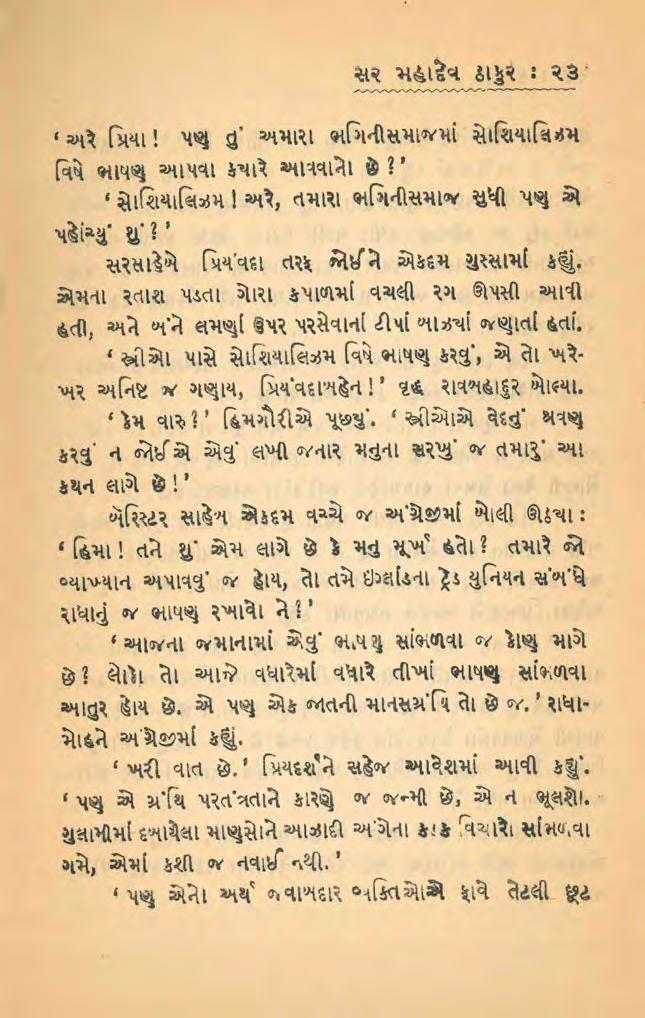 સર મહાદેવ ઠાકુર : ૨૩
‘ અરે પ્રિયા ! પણ તું અમારા ભગિનીસમાજમાં સોશિયાલિઝમ
વિષે ભાષણ આપવા ક્યારે આવવાનો છે ?’
‘ સોશિયાલિઝમ ! અરે, તમારા ભગિનીસમાજ સુધી પણ એ
પહોંચ્યું શું ?’
સરસાહેબે પ્રિયંવદા તરફ જોઈને એકદમ ગુસ્સામાં કહ્યું.
એમના રતાશ પડતા ગોરા કપાળમાં વચલી રગ ઊપસી આવી
હતી, અને બંને લમણાં ઉપર પરસેવાનાં ટીપાં બાઝ્યાં જણાતાં હતાં.
‘ સ્ત્રીઓ પાસે સોશિયાલિઝમ વિષે ભાષણ કરવું, એ તો ખરે-
ખર અનિષ્ટ જ ગણાય, પ્રિયંવદાબહેન !’ વૃદ્ધ રાવબહાદુર બોલ્યા.
‘ કેમ વારુ ?’ હિમગૌરીએ પૂછ્યું. ‘ સ્ત્રીઓએ વેદનું શ્રવણ
કરવું ન જોઈએ એવું લખી જનાર મનુના સરખું જ તમારું આ
કથન લાગે છે !’
બૅરિસ્ટર સાહેબ એકદમ વચ્ચે જ અંગ્રેજીમાં બોલી ઊઠ્યા :
‘ હિમા ! તને શું એમ લાગે છે કે મનુ મૂર્ખ હતો ? તમારે જો
વ્યાખ્યાન અપાવવું જ હોય, તો તમે ઇંગ્લાંડના ટ્રેડ યુનિયન સંબંધે
રાધાનું જ ભાષણ રખાવો ને ?’
‘ આજના જમાનામાં એવું ભાષણ સાંભળવા જ કોણ માગે
છે ? લોકો તો આજે વધારેમાં વધારે તીખાં ભાષણ સાંભળવા
આતુર હોય છે. એ પણ એક જાતની માનસગ્રંથિ તો છે જ.’ રાધા-
મોહને અંગ્રેજીમાં કહ્યું.
‘ ખરી વાત છે.’ પ્રિયદર્શને સહેજ આવેશમાં આવી કહ્યું.
‘ પણ એ ગ્રંથિ પરતંત્રતાને કારણે જ જન્મી છે, એ ન ભૂલશો.
ગુલામીમાં દબાયેલા માણસોને આઝાદી અંગેના કડક વિચારો સાંભળવા
ગમે, એમાં કશી જ નવાઈ નથી.’
‘ પણ એનો અર્થ જવાબદાર વ્યક્તિઓએ ફાવે તેટલી છૂટ